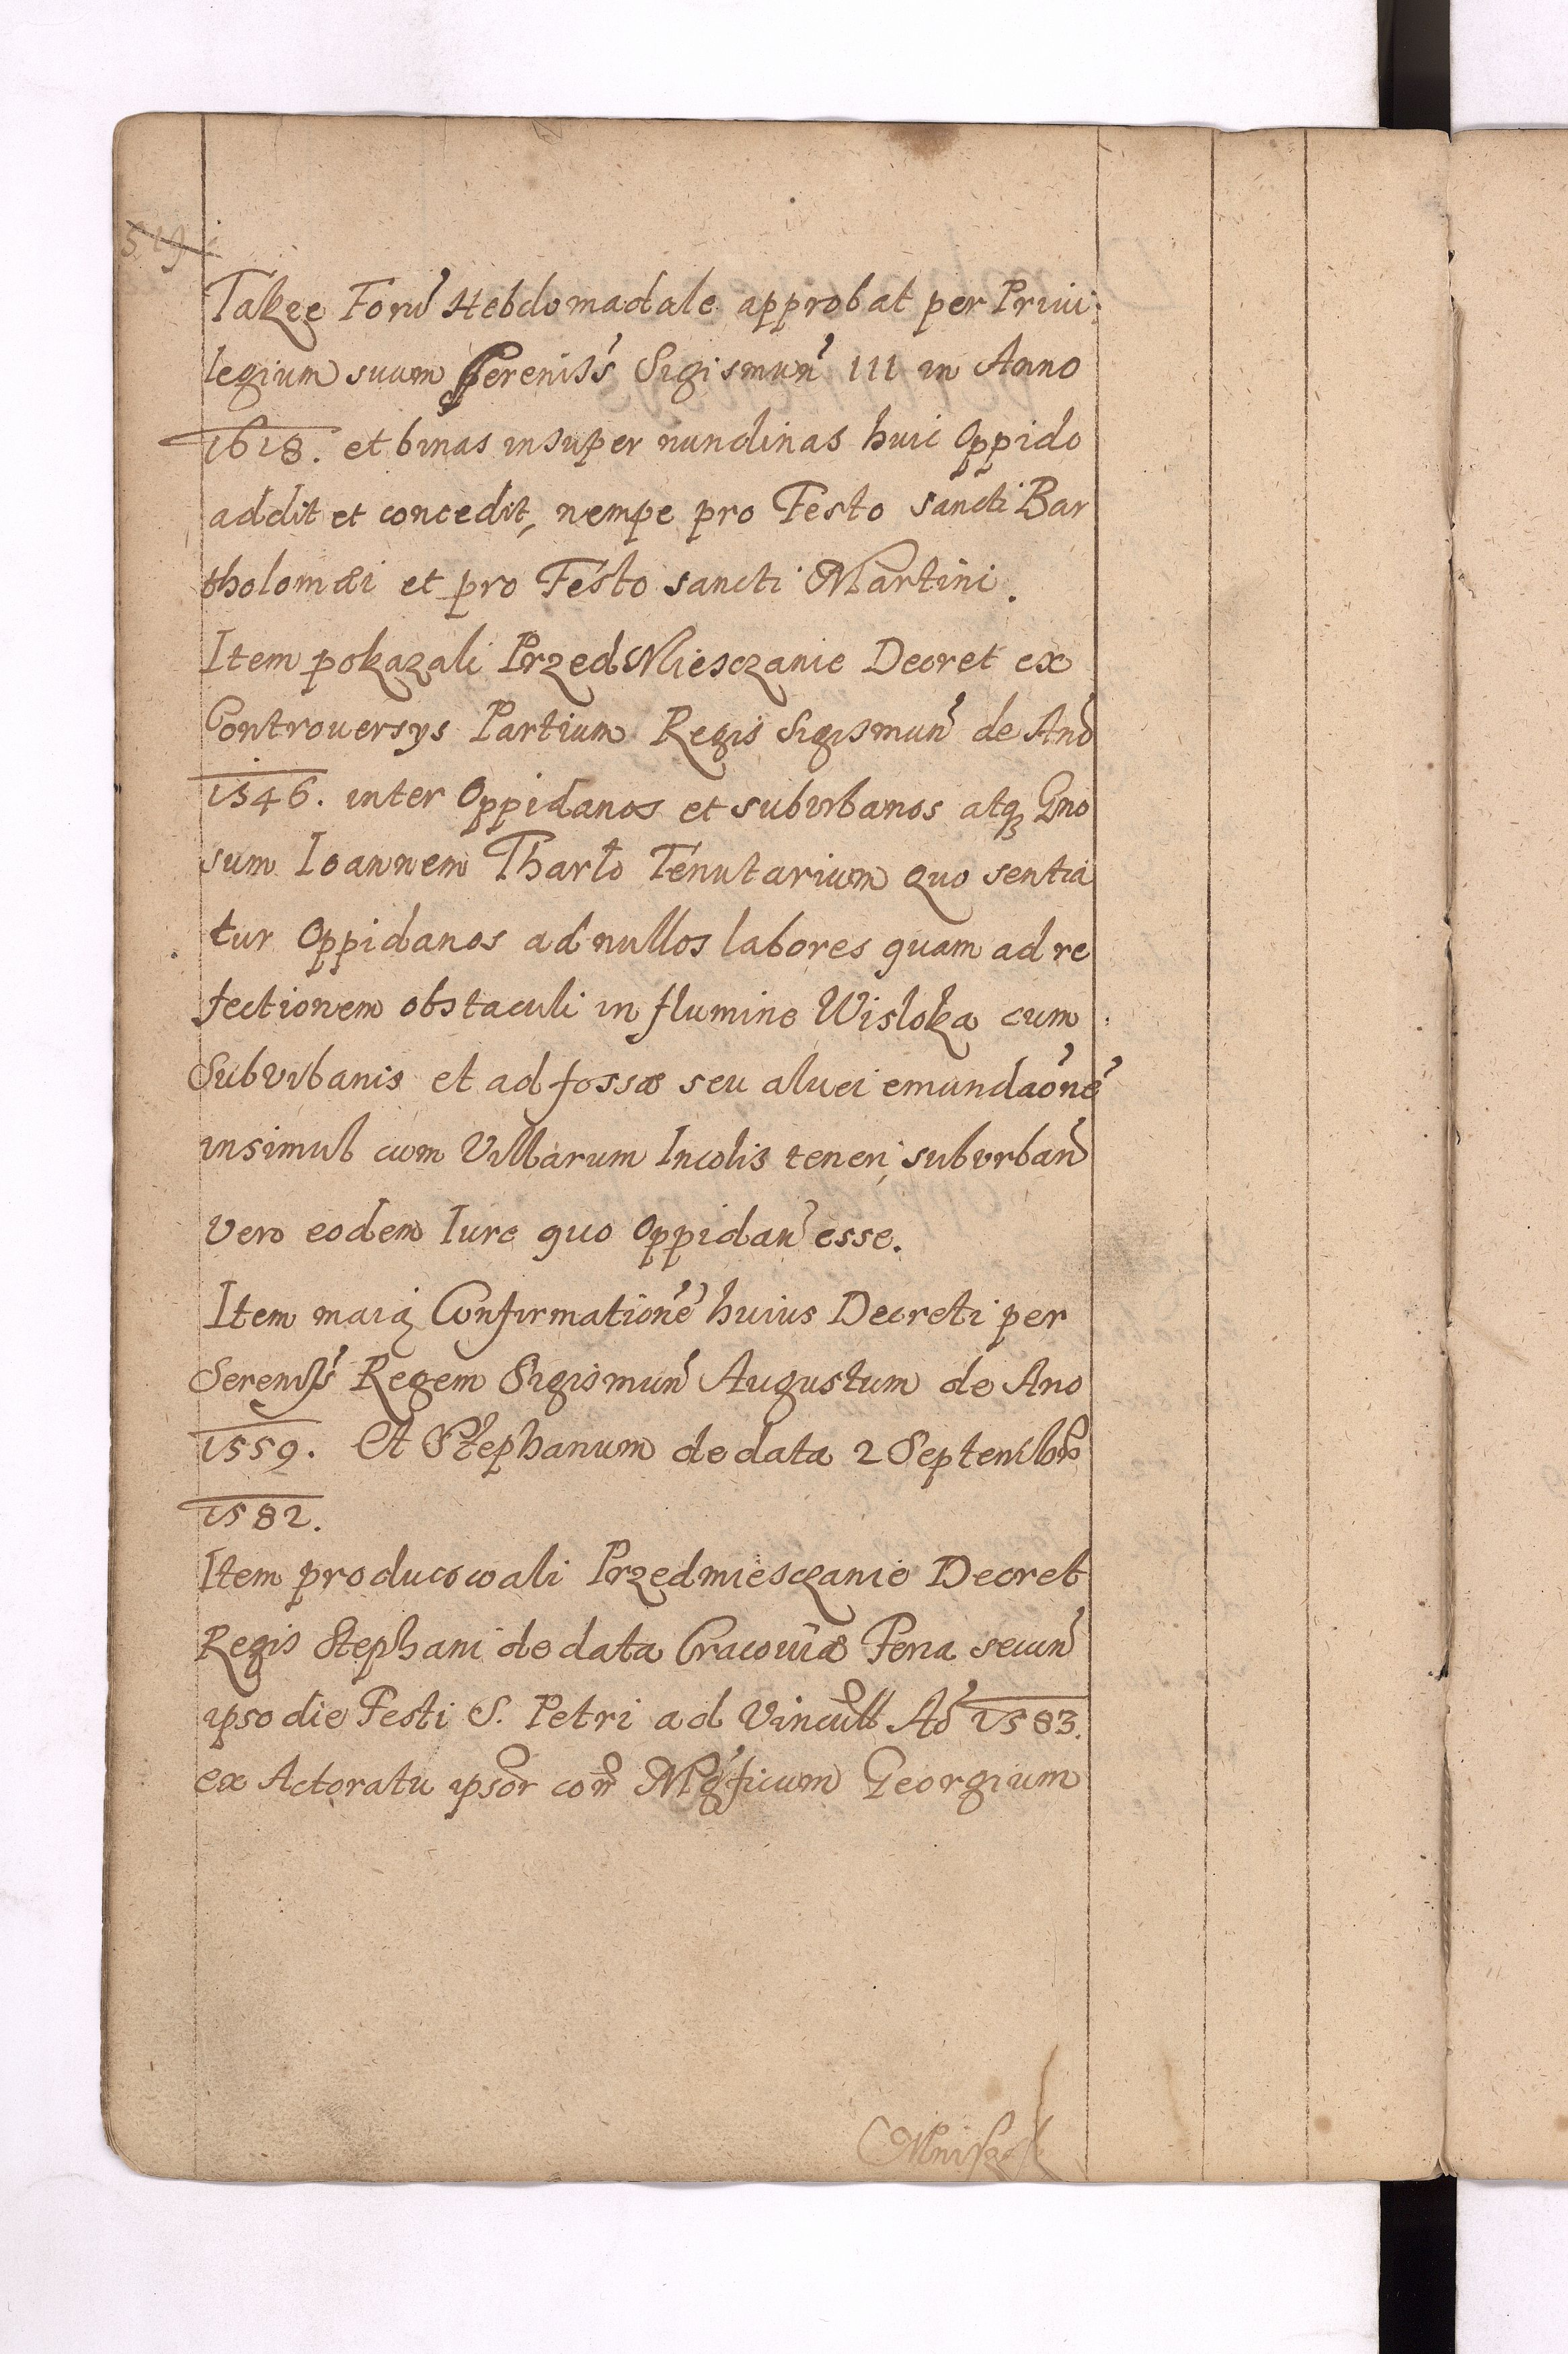 519
Takze Foru̅ Hebdomadale approbat per Priui:
legium suum Sereniss̛ Sigismun̛ III in Anno
1618. et binas insuper nundinas huic Oppido
addit et concedit, nempe pro Festo sancti Bar
tholomæi et pro Festo sancti Martini.
Item pokazali PrzedMiesczanie Decret ex
Controuersys Partium Regis Sigismun̛ de An̛o
1546. inter Oppidanos et suburbanos atqꝫ Gno
sum Ioannem Tharło Tenutarium quo sentia
tur Oppidanos ad nullos labores quam ad re
fectionem obstaculi in flumine Wisloka cum
Suburbanis et ad fossæ seu aluei emundaơne̛
insimul cum Villarum Incolis teneri suburban̛
vero eodem Iure quo Oppidan̛ esse.
Item maią Confirmatione̛ huius Decreti per
Sereniss̛ Regem Sigismun̛ Augustum de Ano
1559. Et Stephanum de data 2 Septembr̛
1582.
Item producowali Przedmiesczanie Decret
Regis Stephani de data Cracouiæ Feria secun̛
ipso die Festi S. Petri ad Vincull Aơ 1583.
ex Actoratu ipsor con̛ Mg̛ficum Georgium